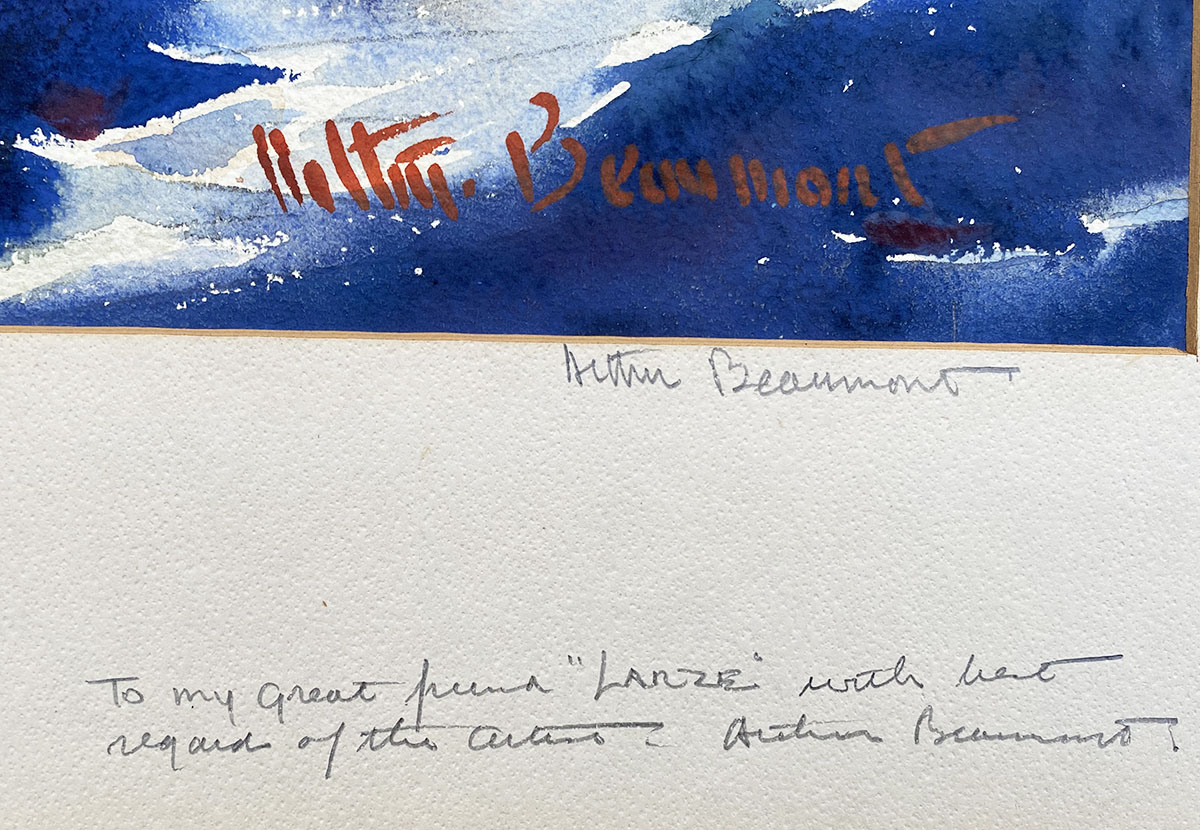 Arthur. Beaumont
Arthur Beaumont
To my great friend "LARZE" with best
regards of the artist – Arthur Beaumont.